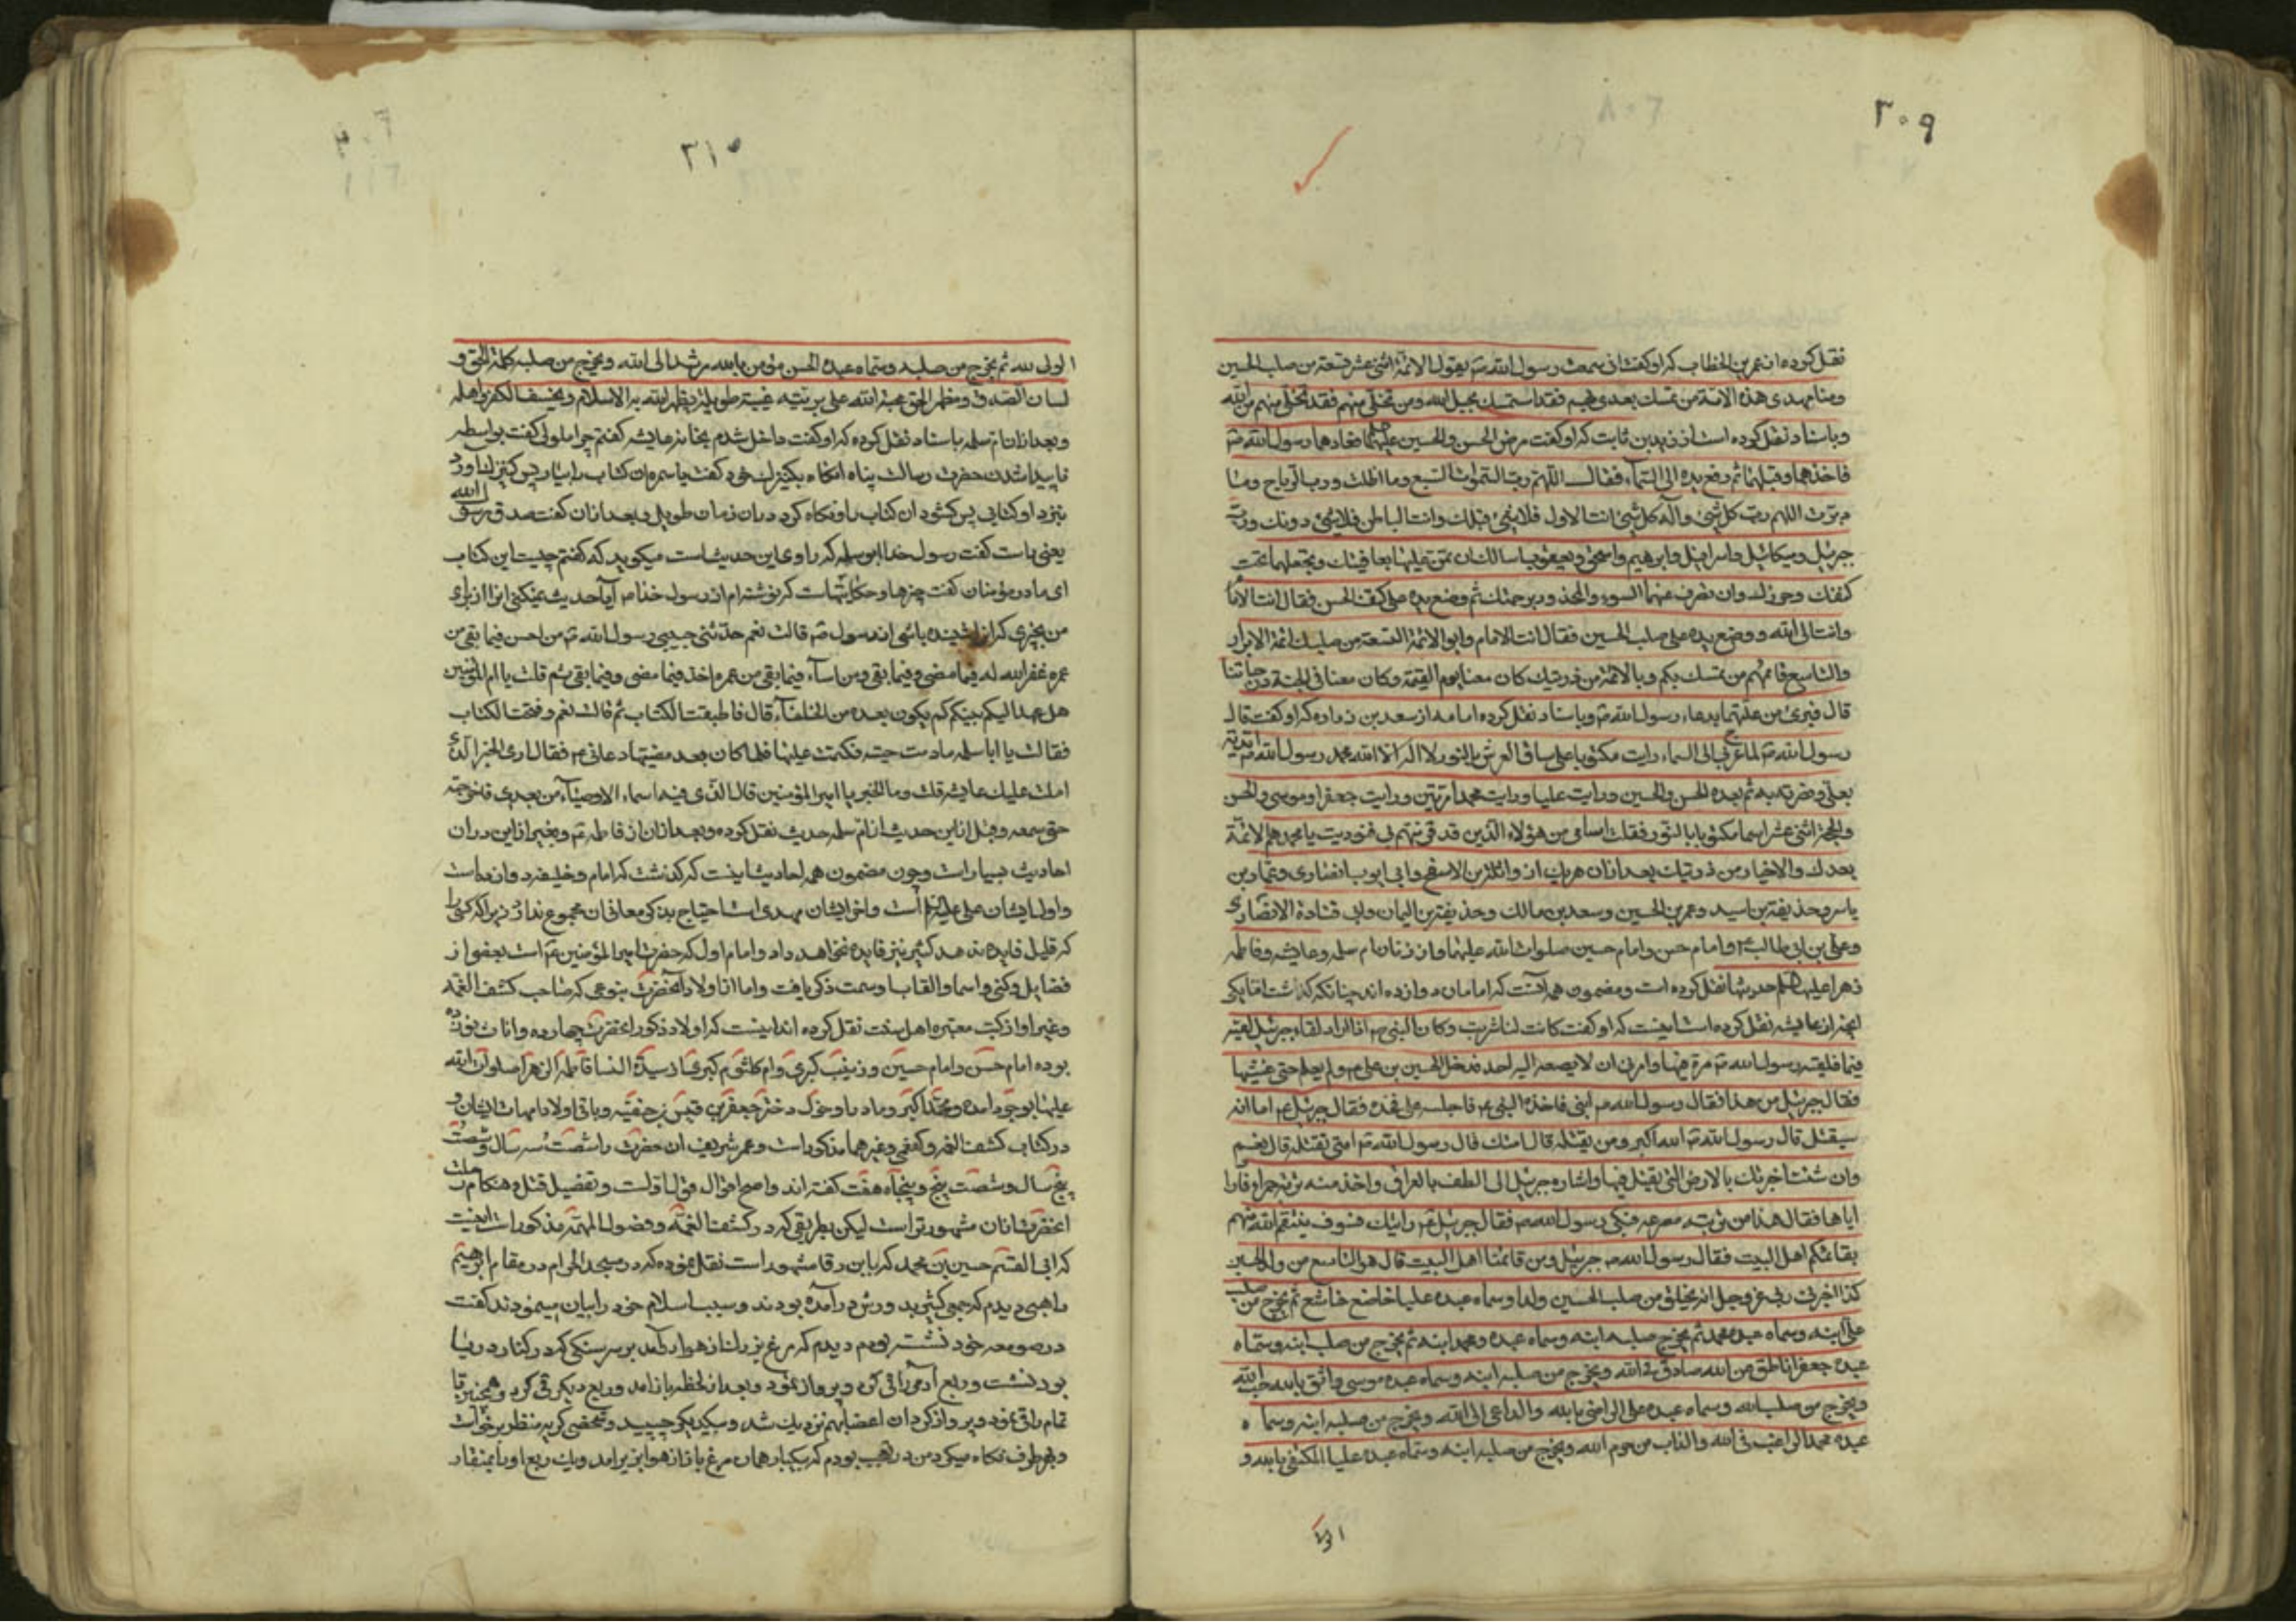 ۳۰۹
نقل کرده از عمر بن الخطاب که او گفت از سمعت رسول الله ص یقول الائمة اثنی عشر تسعة من صلب الحسین
ومنا مهدی هذه الامة من تمسک بعدی بهم فقد استمسک بحبل الله ومن تخلی منهم فقد تخلی منهم من الله
وباسناد نقل کرده است از زید بن ثابت که او گفت مرض الحسن والحسین علیهما فعادهما رسول الله ص
فاخذهما وقبلهما ثم رفع یده الی السماء فقال اللهم رب السموات السبع وما اظلت ورب الریاح وما
ذرت اللهم رب کل شیء واله کل شیء انت الاول فلا شیء قبلک وانت الباطن فلا شیء دونک ورب
جبرئیل ومیکائیل واسرافیل وابرهیم واسحق ویعقوب اسالک ان تمن علیهما بعافیتک وتجعلهما تحت
کنفک وحرزک وان تصرف عنهما السوء والمحذور برحمتک ثم وضع یده علی کتف الحسن فقال انت الامام
وابن ولی الله ووضع یده علی صلب الحسین فقال انت الامام وابو الائمة التسعة من صلبک ائمة الابرار
والتاسع قائمهم من تمسک بکم وبالائمة من ذریتک کان معنا یوم القیمة وکان معنا فی الجنة
قال فبرئ من علتهما بدعاء رسول الله ص وباسناد نقل کرده اما مد از سعد بن زراره که او گفت قال
رسول الله ص لما عرج بی الی السماء رایت مکتوبا علی ساق العرش بالنور لا اله الا الله محمد رسول الله ص ایدته
بعلی ونصرته به ثم بعده الحسن والحسین ورایت علیا ورایت محمدا مرتین ورایت جعفرا وموسی والحسن
والحجة اثنی عشر اسما مکتوبا بالنور فقلت اسامی من هؤلاء الذین قد قرنتهم بی فنودیت یا محمد هم الائمة
بعدک والاخیار من ذریتک بعد ازان هر یک از واثلة بن الاسقع وابی ایوب انصاری وعمار بن
یاسر وحذیفة بن اسید وعمر بن الحسین وسعد بن مالک وحذیفة بن الیمان وابی قتادة الانصاری
وعلی بن ابی طالب ع وامام حسن وامام حسین صلوات الله علیهما واز زنان ام سلمه وعایشه وفاطمه
زهرا علیها حدیثها نقل کرده است ومضمون همه آنست که امامان دوازده اند چنانکه گذشت اما یکی
انچه از عایشه نقل کرده است اینست که او گفت کانت لنا مشربة وکان النبی ص اذا اراد لقاء جبرئیل لقیه
فیها فلقیه رسول الله ص مرة فیها وامرنی ان لا یصعد الیه احد فدخل الحسین بن علی ع ولم یعلم حتی غشیها
فقال جبرئیل من هذا فقال رسول الله ص ابنی فاخذه النبی ص فاجلسه علی فخذه فقال جبرئیل ع اما انه
سیقتل قال رسول الله ص الله اکبر ومن یقتله قال امتک قال رسول الله ص امتی تقتله قال نعم
وان شئت اخبرتک بالارض التی یقتل فیها واشاره جبرئیل الی الطف بالعراق واخذ منه تربة حمرا وفارا
ایاها فقال هذا من تربة مصرعه فبکی رسول الله ص فقال جبرئیل ع رایتک فسوف ینتقم الله منهم
بقائمکم اهل البیت فقال رسول الله ص جبرئیل ومن قائمنا اهل البیت قال هو التاسع من ولد الحسین
کذا اخبرنی ربی عز وجل انه یخلق من صلب الحسین ولدا وسماه عبده علیا خاضع خاشع ثم یخرج من صلب
علی ابنه وسماه عبده محمد ثم یخرج صلبه ابنه وسماه عبده ومحمد ابنه ثم یخرج من صلب ابنه وسماه
عبده جعفرا ناطق من الله صادق فی الله ویخرج من صلبه ابنه وسماه عبده موسی واثق بالله محب الله
ویخرج من صلب الله وسماه عبده علی الراضی بالله والداعی الی الله ویخرج من صلبه ابنه وسماه
عبده محمد الراغب فی الله والذاب من حرم الله ویخرج من صلبه ابنه وسماه عبده علیا المکتفی بالله و
۳۱۰
الولی لله ثم یخرج من صلبه وسماه عبده الحسن مؤمن بالله مرشد الی الله ویخرج من صلبه کلمة الحق و
لسان الصدق ومظهر الحق حجة الله علی بریته غیبة طویلة یظهر الله به الاسلام ویخسف الکفر واهله
وبعد ازان ام سلمه باسناد نقل کرده که او گفت داخل شدم بخانه عایشه گفتم چرا ملولی گفت بواسطه
ناپیدا شدن حضرت رسالت پناه انگاه بکنیزک خود گفت یا سمره ان کتاب را بیار پس کنیزک اورد
بنزد او کتابی پس گشود ان کتاب را ونگاه کرد دران زمان طویل وبعد ازان گفت صدق رسول الله
یعنی راست گفت رسول خدا ابو سلمه که راوی این حدیث است میگوید که گفتم چیست این کتاب
ای مادر مؤمنان گفت چیزها وحکایتهاست که نوشته ام از رسول خدا ص آیا حدیث نمیکنی مرا از برای
من بچیزی که انرا شنیده باشی از رسول ص قالت نعم حدثنی حبیبی رسول الله ص من احسن فیما بقی من
عمره غفر الله له فیما مضی وفیما بقی ومن اساء فیما بقی من عمره اخذ فیما مضی وفیما بقی ثم قلت یا ام المؤمنین
هل عهد الیکم نبیکم کم یکون بعده من الخلفاء قال فاطبقت الکتاب ثم قالت نعم وفتحت الکتاب
فقالت یا ابا سلمه مادمت حیة فکتمت علیها فلما کان بعد مضیها دعانی ع فقال اری الخبر الذی
املت علیک عایشه قلت وما الخبر یا امیر المؤمنین قال الذی فیه اسماء الاوصیاء من بعدی فاخرجته
حتی سمعه وقبل از این حدیث از ام سلمه حدیث نقل کرده وبعد ازان از فاطمه ع وبغیر از این دران
احادیث بسیار است وچون مضمون همه احادیث اینست که گذشت که امام وخلیفه دوازده است
واول ایشان علی علیه السلام است واخر ایشان مهدی است احتیاج بذکر معانی ان مجموع ندارد زیرا که کسی را
که قلیل فایده ندهد کثیر نیز فایده نخواهد داد وامام اول که حضرت امیر المؤمنین ع است بعضی از
فضایل وکنی واسما والقاب او سمت ذکر یافت واما از اولاد آنحضرت بنوعی که صاحب کشف الغمه
وغیر او از کتب معتبره اهل سنت نقل کرده اند اینست که اولاد ذکور آنحضرت چهارده واناث نوزده
بوده امام حسن وامام حسین وزینب کبری وام کلثوم کبری از سیدة النسا فاطمه الزهرا صلوات الله
علیها بوجود آمده ومحمد اکبر ومادر او خوله دختر جعفر بن قیس بن حنفیه وباقی اولاد امهات ایشان و
در کتاب کشف الغمه وکفعمی وغیرهما مذکور است وعمر شریف ان حضرت را شصت سه سال وشصت
پنج سال وشصت پنج وپنجاه هفت گفته اند واصح اقوال قول اولست وتفصیل قتل وهنگام رحلت
آنحضرت ازان مشهورتر است لیکن بطریقی که در کشف الغمه وفصول المهمه مذکور است اینست
که ابی القسم حسین بن محمد که بابن رقا مشهور است نقل نموده که در مسجد الحرام در مقام ابرهیم
راهبی دیدم که جمعی کثیر بدورش درآمده بودند وسبب اسلام خود را بیان مینمود گفت
در صومعه خود نشسته بودم دیدم که مرغ بزرگ از هوا درآمد بر سر سنگی که در کنار دریا
بود نشست وربع آدمی را قی کرد وپرواز نمود وبعد از لحظه باز آمد وربع دیگر قی کرد وهمچنین تا
تمام را قی نمود وپرواز کرد ان اعضا بهم نزدیک شد وبیکدیگر چسپید وشخصی کریه منظر برخواست
وبهر طرف نگاه میکرد من در تعجب بودم که بیکبار همان مرغ باز از هوا بزیر آمد ویک ربع او را بمنقار